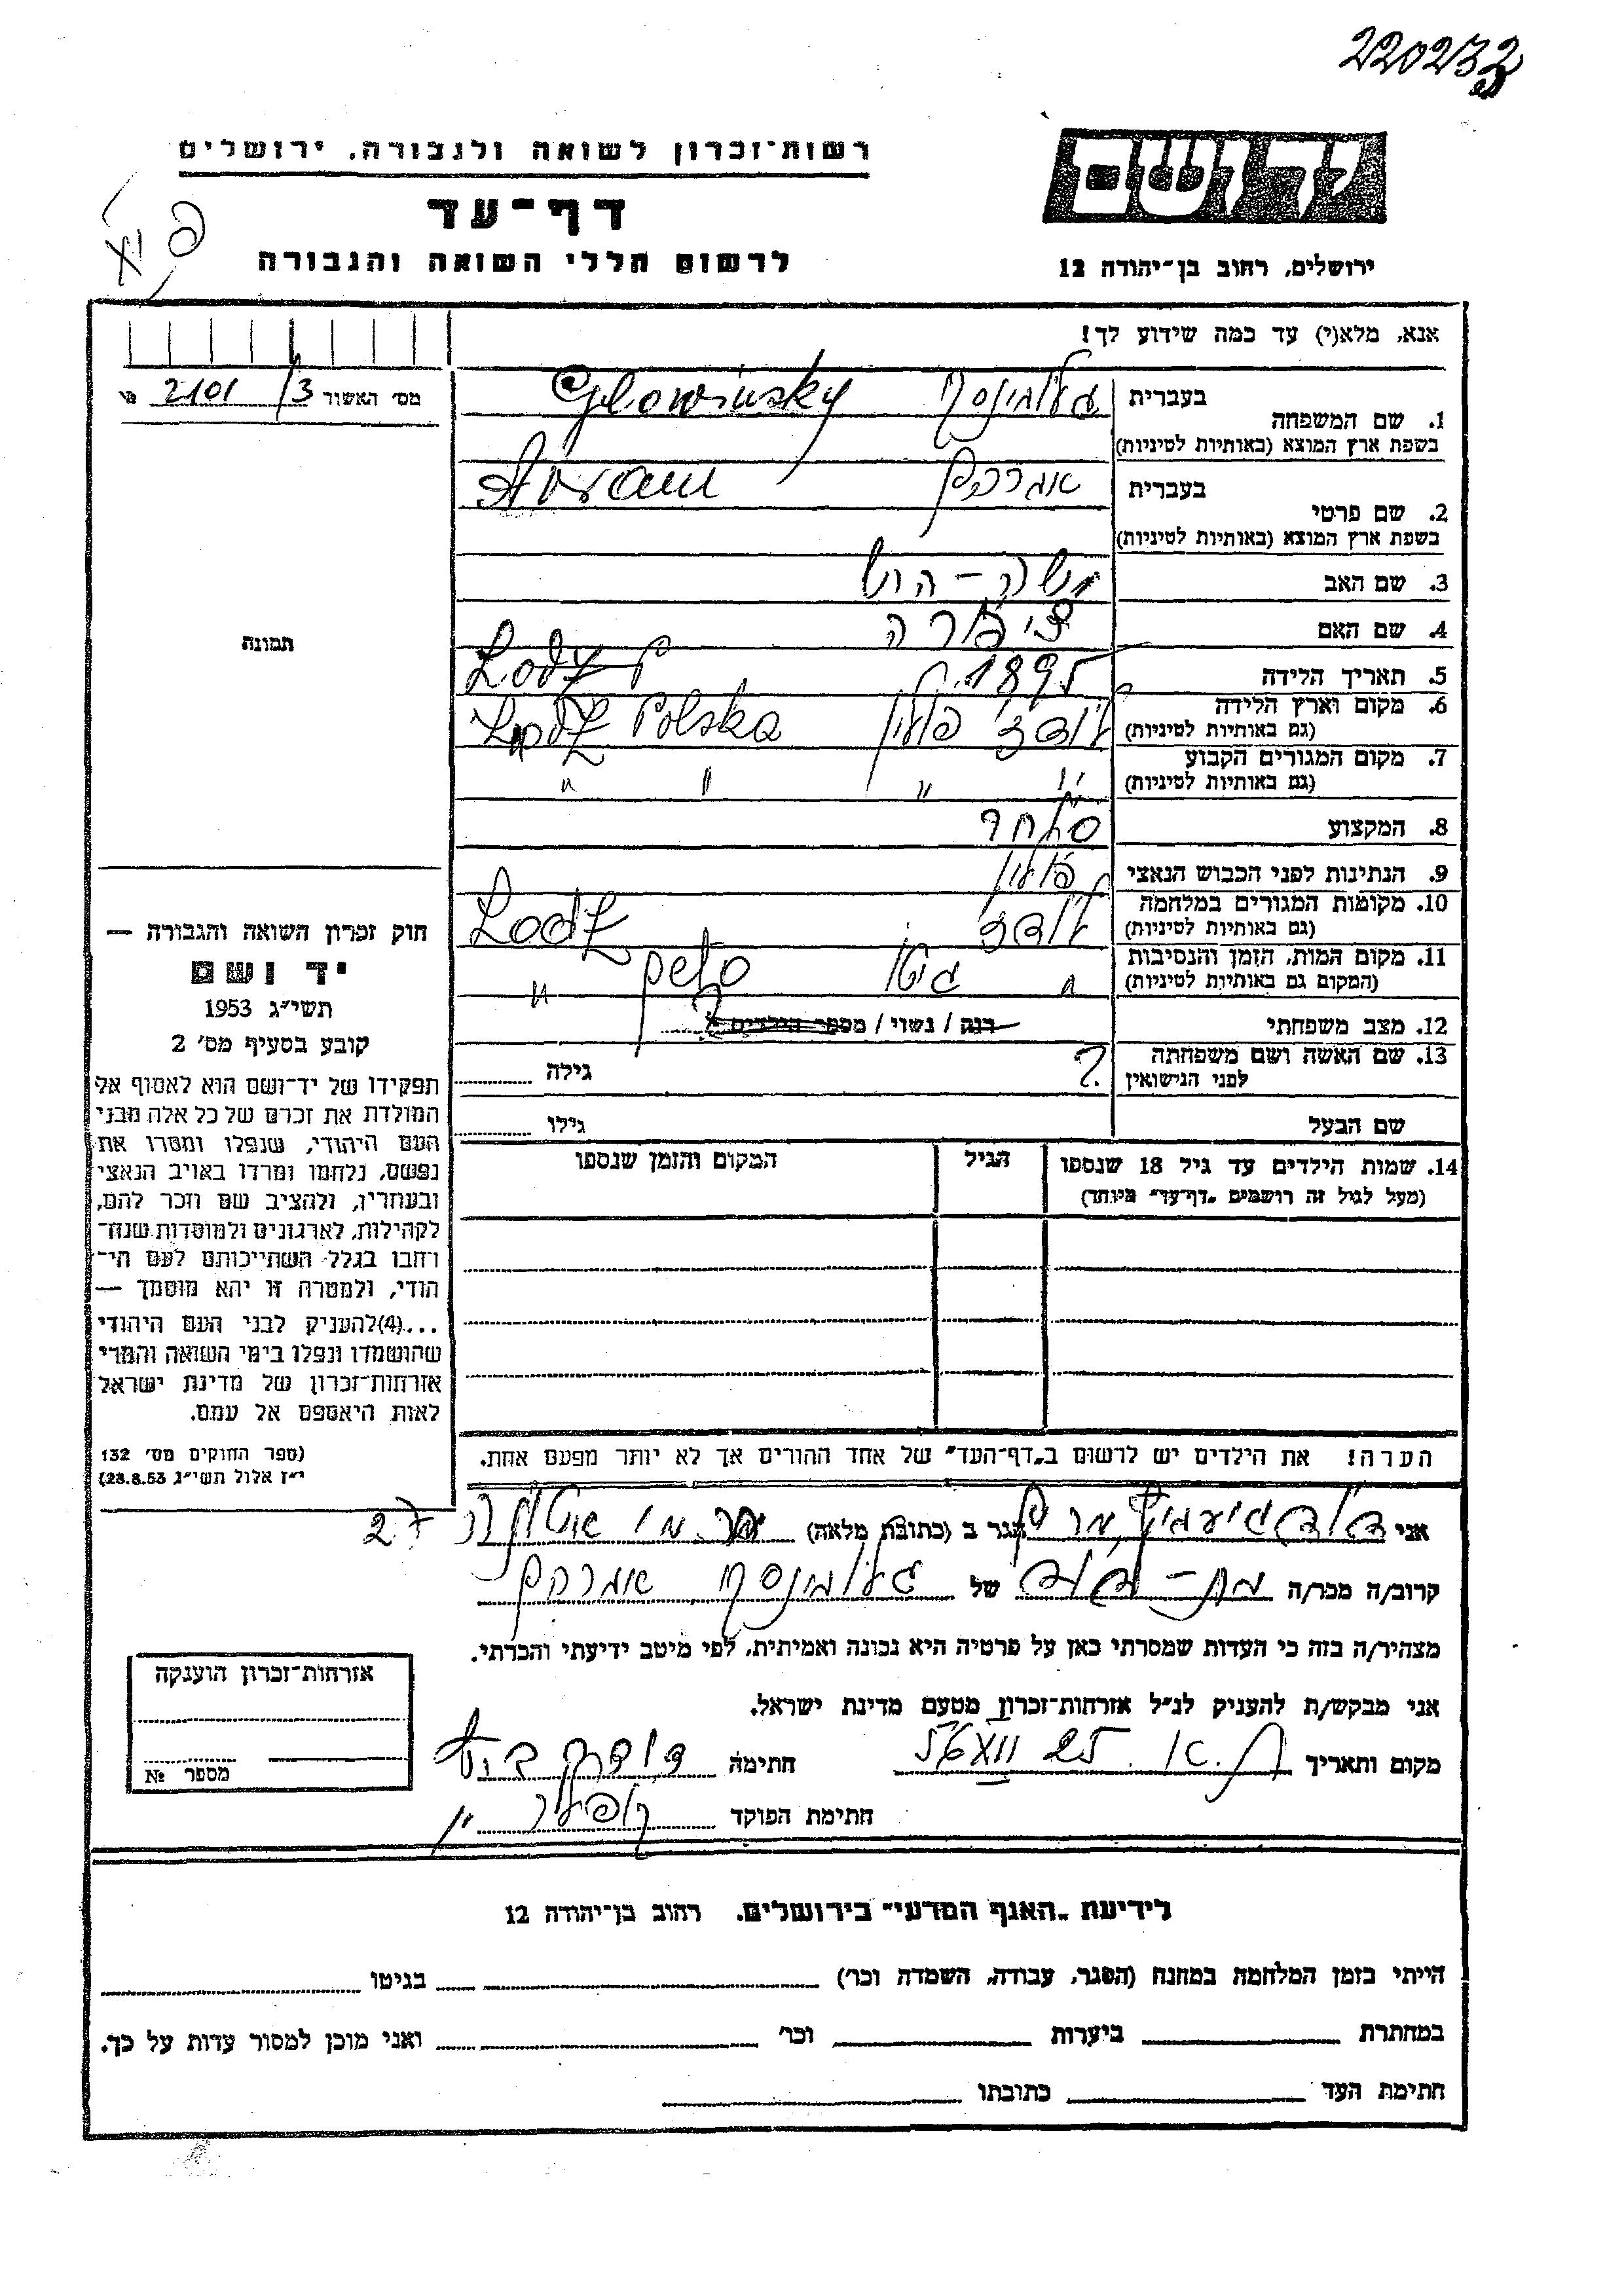 220273
רשות־זכרון לשואה ולגבורה, ירושלים
יד ושם
דף־עד
לרשום חללי השואה והגבורה
ירושלים, רחוב בן־יהודה 12
אנא, מלא(י) עד כמה שידוע לך!
מס׳ האשור 2101/3
1. שם המשפחה בעברית Glowinsky
בשפת ארץ המוצא (באותיות לטיניות)
2. שם פרטי בעברית אברהם Avram
בשפת ארץ המוצא (באותיות לטיניות)
3. שם האב משה - הרש
4. שם האם ציפורה
תמונה
5. תאריך הלידה 1895 Lodz
6. מקום וארץ הלידה לודז׳ פולין Lodz Polska
(גם באותיות לטיניות)
7. מקום המגורים הקבוע " " " "
(גם באותיות לטיניות)
8. המקצוע סוחר
9. הנתינות לפני הכבוש הנאצי פולין
10. מקומות המגורים במלחמה לודז Lodz
(גם באותיות לטיניות)
11. מקום המות, הזמן והנסיבות " גיטו geto "
(המקום גם באותיות לטיניות)
12. מצב משפחתי רוק / נשוי / מספר הילדים
13. שם האשה ושם משפחתה ? גילה
לפני הנישואין
שם הבעל גילו
14. שמות הילדים עד גיל 18 שנספו הגיל המקום והזמן שנספו
(מעל לגיל זה רושמים „דף־עד״ מיוחד)
חוק זכרון השואה והגבורה —
יד ושם
תשי״ג 1953
קובע בסעיף מס׳ 2
תפקידו של יד־ושם הוא לאסוף אל
המולדת את זכרם של כל אלה מבני
העם היהודי, שנפלו ומסרו את
נפשם, נלחמו ומרדו באויב הנאצי
ובעוזריו, ולהציב שם וזכר להם,
לקהילות, לארגונים ולמוסדות שנח־
רבו בגלל השתייכותם לעם הי־
הודי, ולמטרה זו יהא מוסמך —
...(4) להעניק לבני העם היהודי
שהושמדו ונפלו בימי השואה והמרי
אזרחות־זכרון של מדינת ישראל
לאות היאספם אל עמם.
(ספר החוקים מס׳ 132
י״ז אלול תשי״ג 28.8.53)
הערה! את הילדים יש לרשום ב„דף־העד״ של אחד ההורים אך לא יותר מפעם אחת.
אני הגר ב (כתובת מלאה) 27
קרוב/ה מכר/ה בת - דוד של אברהם
מצהיר/ה בזה כי העדות שמסרתי כאן על פרטיה היא נכונה ואמיתית, לפי מיטב ידיעתי והכרתי.
אני מבקש/ת להעניק לנ״ל אזרחות־זכרון מטעם מדינת ישראל.
מקום ותאריך ת.א. 25 חתימה
חתימת הפוקד
אזרחות־זכרון הוענקה
מספר №
לידיעת „האגף המדעי״ בירושלים. רחוב בן־יהודה 12
הייתי בזמן המלחמה במחנה (הסגר, עבודה, השמדה וכו׳) בגיטו
במחתרת ביערות וכו׳ ואני מוכן למסור עדות על כך.
חתימת העד כתובתו